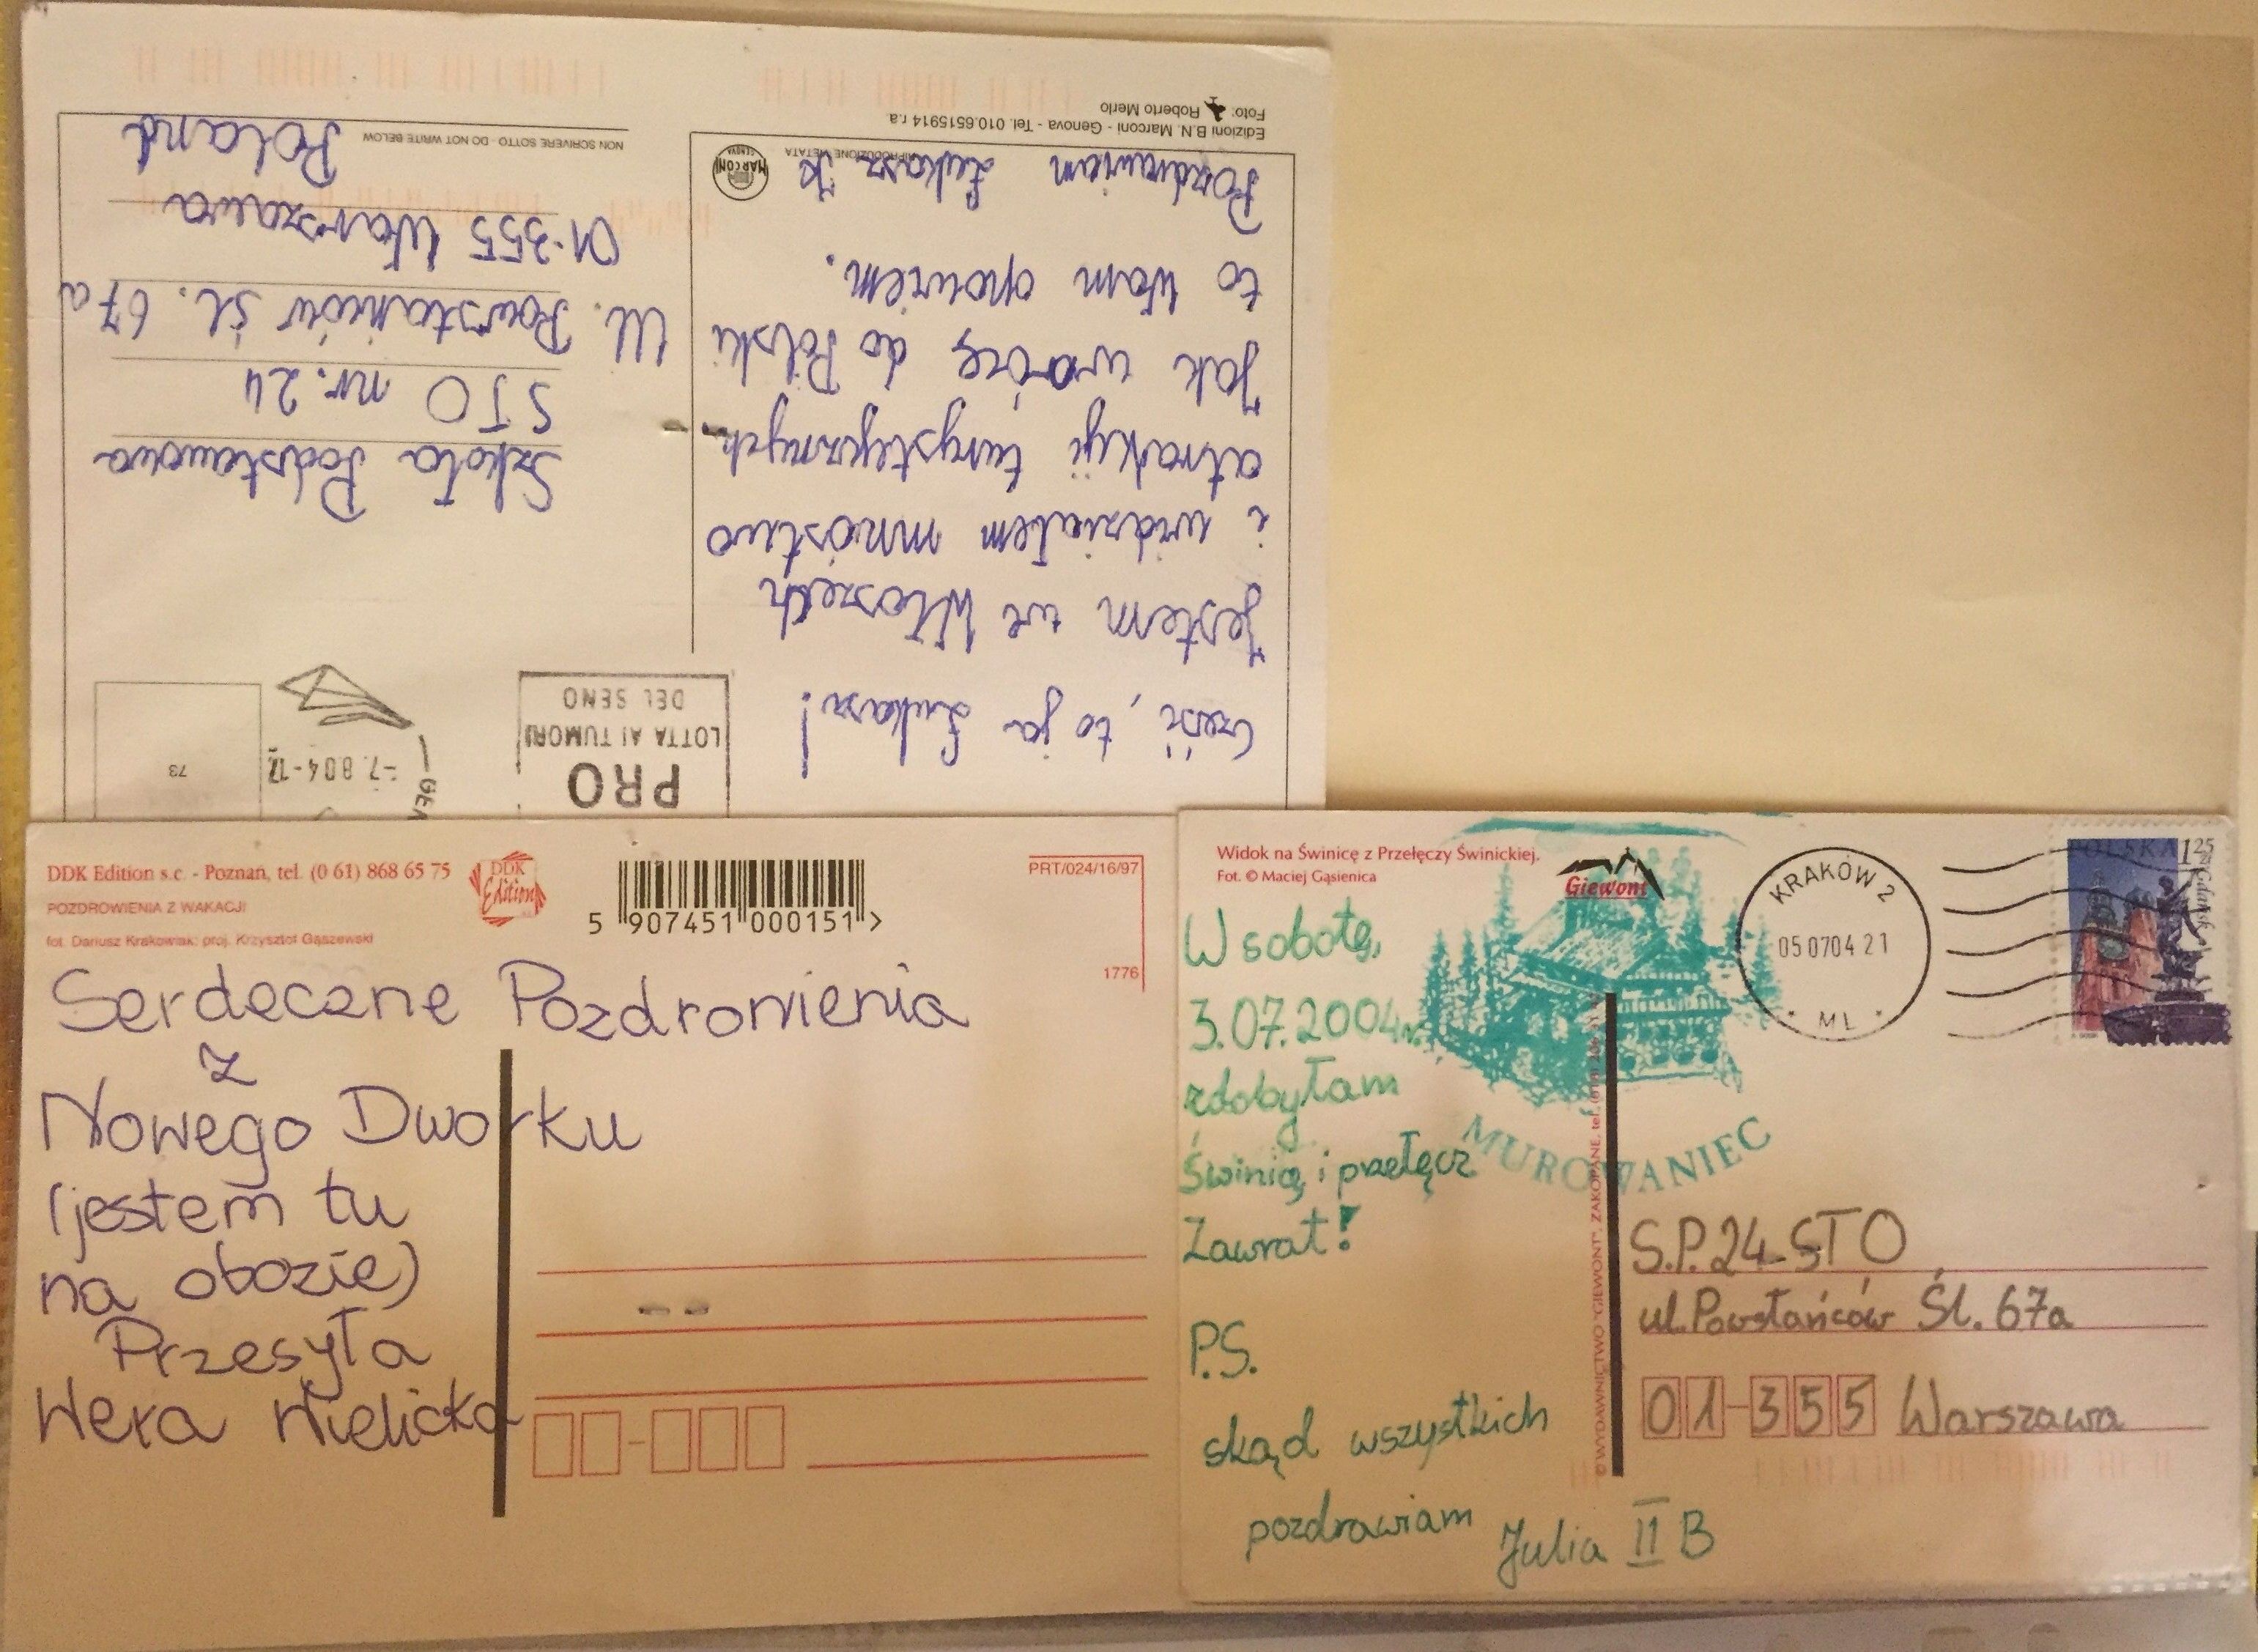 Foto: Roberto Merlo
Edizioni B.N. Marconi - Genova - Tel. 010.6515914 r.a.
RIPRODUZIONE VIETATA
MARCONI
GENOVA
Cześć, to ja Łukasz!
Jestem we Włoszech
i widziałem mnóstwo
atrakcji turystycznych.
Jak wrócę do Polski
to Wam opowiem.
Pozdrawiam Łukasz K
PRO
LOTTA AI TUMORI
DEL SENO
-7.8.04-12
GEN
73
Szkoła Podstawowa
STO nr. 24
Ul. Powstańców śl. 67a
01-355 Warszawa
Poland
NON SCRIVERE SOTTO - DO NOT WRITE BELOW
DDK Edition s.c. - Poznań, tel. (0 61) 868 65 75
POZDROWIENIA Z WAKACJI
fot. Dariusz Krakowiak; proj. Krzysztof Gąszewski
DDK
Edition
5 907451 000151 >
PRT/024/16/97
1776
Serdeczne Pozdrowienia
z
Nowego Dworku
(jestem tu
na obozie)
Przesyła
Wera Wielicka
Widok na Świnicę z Przełęczy Świnickiej.
Fot. © Maciej Gąsienica
Giewont
KRAKÓW 2
05 07 04 21
* ML *
POLSKA 1,25 zł
Gdańsk
W sobotę,
3.07.2004r.
zdobyłam
Świnicę i przełęcz
Zawrat!
MUROWANIEC
P.S.
skąd wszystkich
pozdrawiam
Julia II B
© WYDAWNICTWO "GIEWONT", ZAKOPANE, tel.
S.P. 24 STO
ul. Powstańców Śl. 67a
01-355 Warszawa